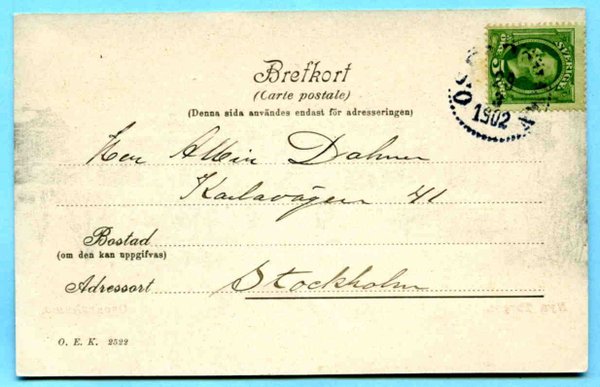 Brefkort
(Carte postale)
(Denna sida användes endast för adresseringen)
SVERIGE
5
1902
Herr Albin Dahmer
Karlavägen 41
Bostad
(om den kan uppgifvas)
Adressort
Stockholm
O. E. K. 2522